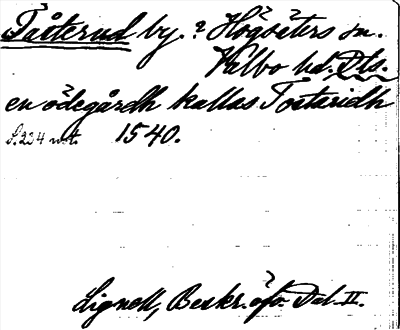 Tåsterud by. ? Högsäters sn.
Valbo hd. Dls.
en ödegårdh kallas Tostaridh
S. 224 not. 1540.
Lignell, Beskr. öfv. Dal. II.